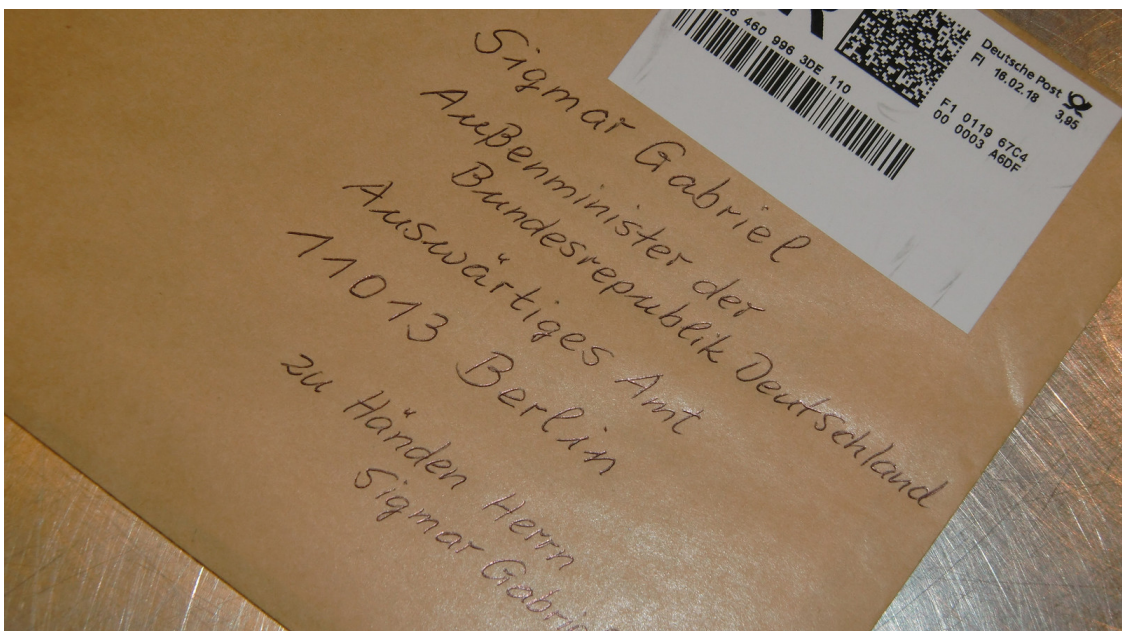 Sigmar Gabriel
Außenminister der
Bundesrepublik Deutschland
Auswärtiges Amt
11013 Berlin
zu Händen Herrn
Sigmar
460 996 3DE 110
Deutsche Post
FI 16.02.18 3,95
F1 0119 67C4
00 0003 A6DF